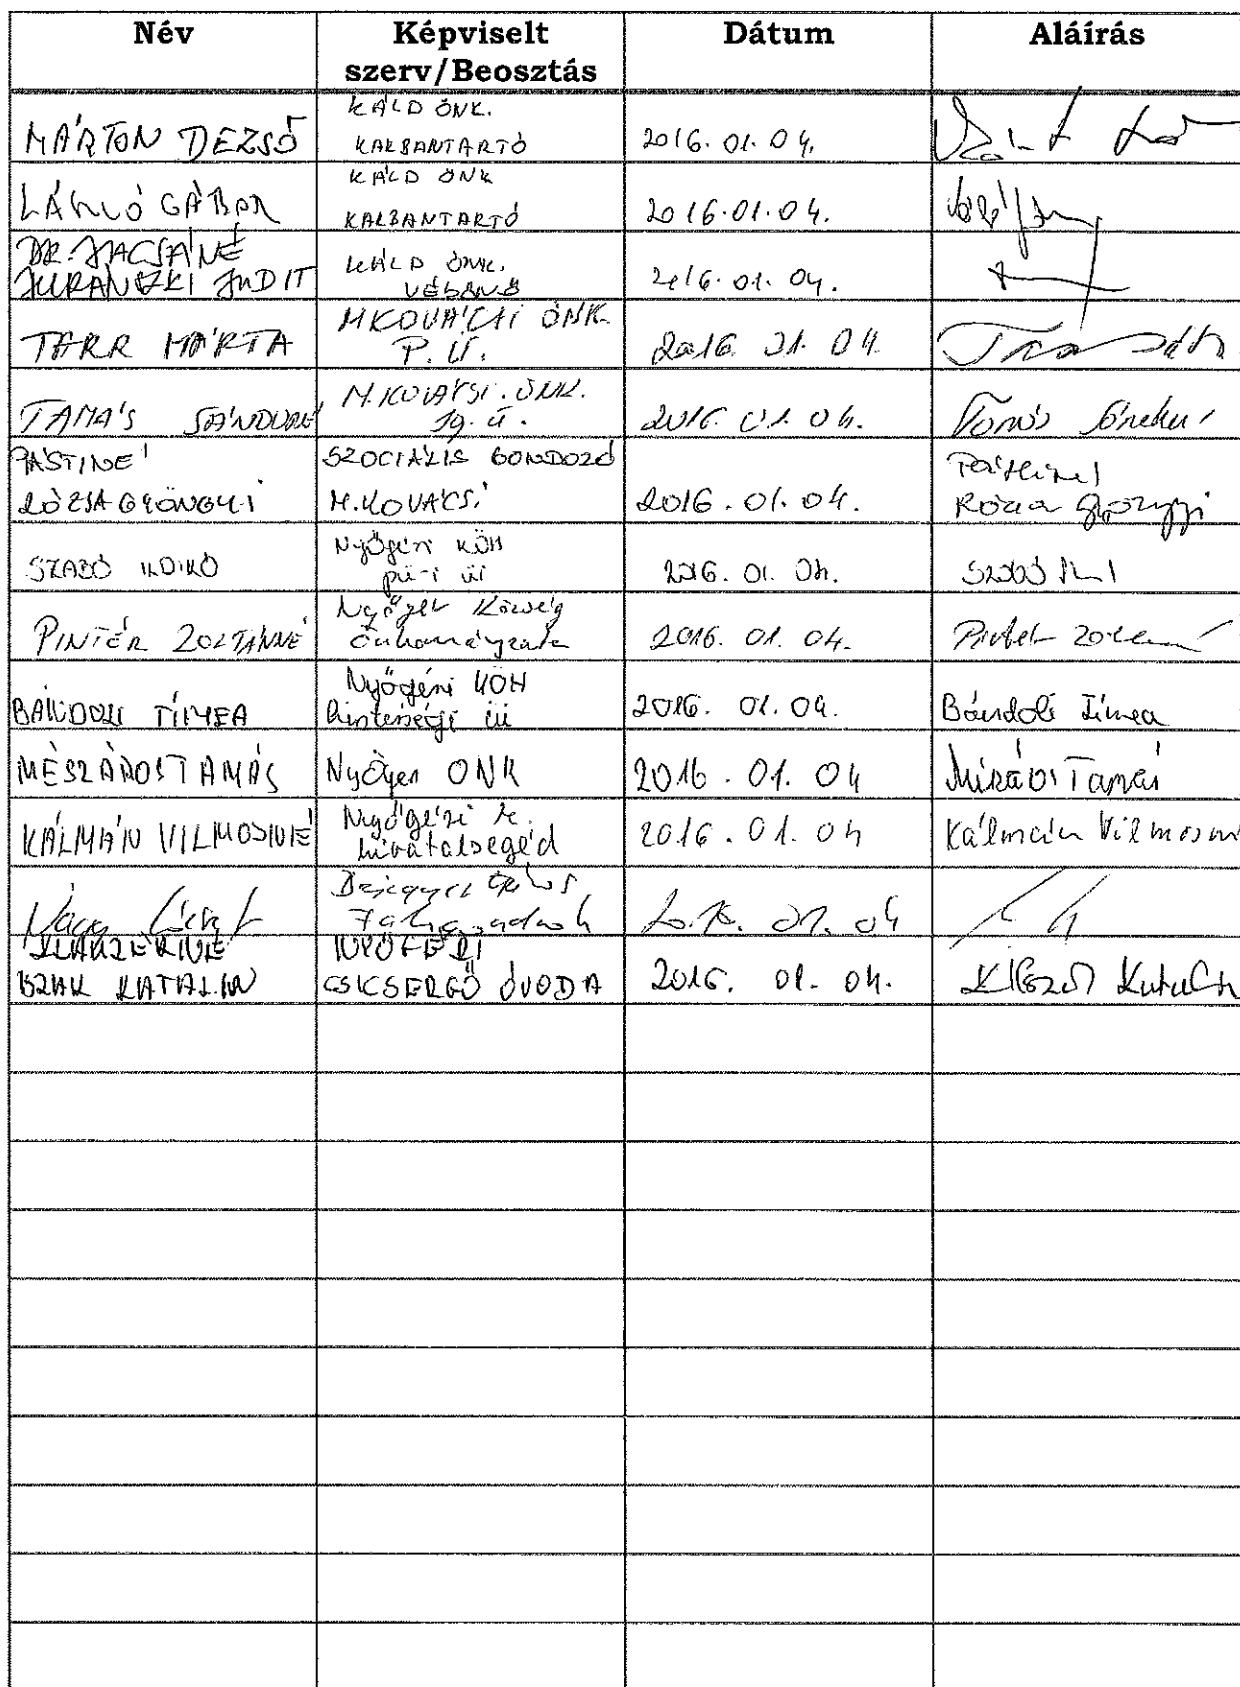 Név
Képviselt
szerv/Beosztás
Dátum
Aláírás
MÁRTON DEZSŐ
KÁLD ÖNK.
KARBANTARTÓ
2016. 01. 04.
LÁSZLÓ GÁBOR
KÁLD ÖNK
KARBANTARTÓ
2016.01.04.
DR.
JUDIT
KÁLD ÖNK.
VÉDŐNŐ
2016.01.04.
TARR MÁRTA
M.KOVÁCSI ÖNK.
P. Ü.
2016. 01. 04.
TAMÁS SÁNDORNÉ
M.KOVÁCSI. ÖNK.
2016. 01. 04.
PÁSTINÉ
RÓZSA GYÖNGYI
SZOCIÁLIS GONDOZÓ
M.KOVÁCSI
2016. 01. 04.
Pástiné
Rózsa Gyöngyi
SZABÓ ILDIKÓ
Nyőgéri KÖH
pü-i üi
2016. 01. 04.
PINTÉR ZOLTÁNNÉ
Nyőgér Község
Önkormányzata
2016. 01. 04.
BÁNDOLI TÍMEA
Nyőgéri KÖH
üi
2016. 01. 04.
Bándoli Tímea
MÉSZÁROS TAMÁS
Nyőgér ONK
2016. 01. 04
Mészáros Tamás
KÁLMÁN VILMOSNÉ
Nyőgéri K.
hivatalsegéd
2016. 01. 04
Kálmán Vilmosné
Nagy
2016. 01. 04
KATALIN
NYŐGÉRI
CSICSERGŐ ÓVODA
2016. 01. 04.
Katalin